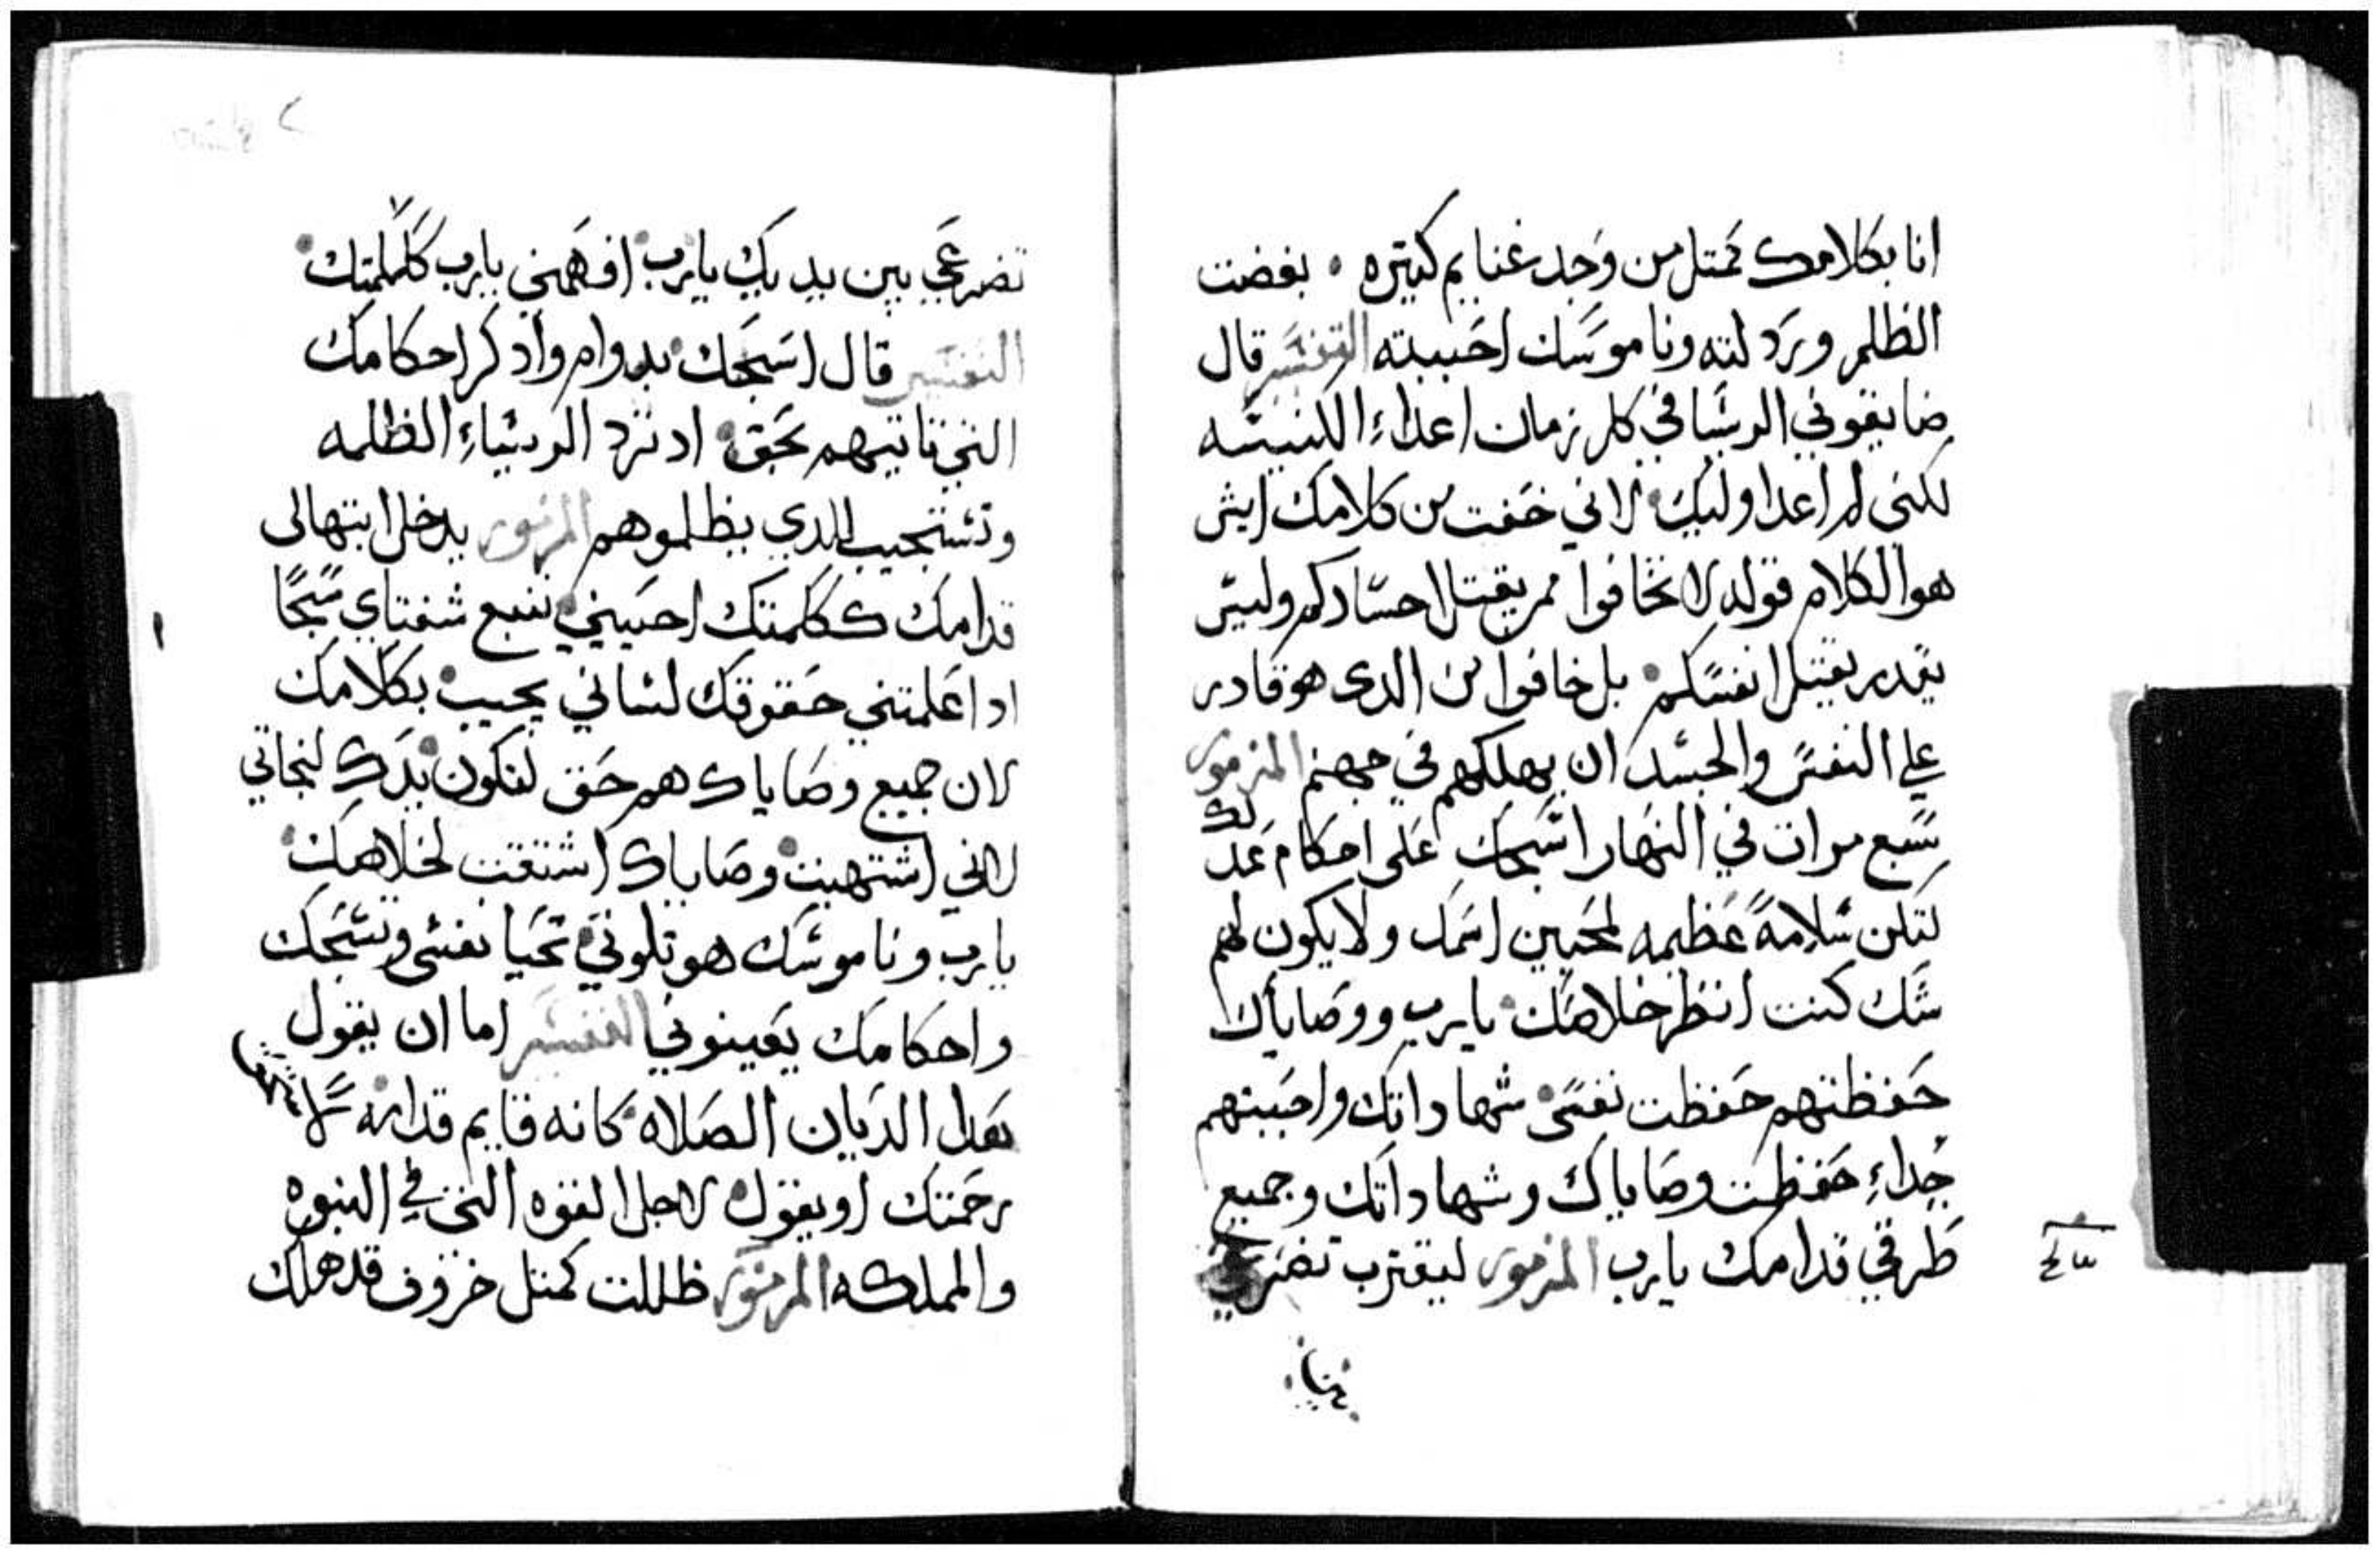 انا بكلامك كمتل من وجد غنايم كتيره . بغضت
الظلم وردلته وناموسك احببته التفسير قال
ضايقوني الروسا في كل زمان اعداء الكنيسه
لكني لم اعد اوليك لاني خفت من كلامك ايش
هو الكلام قوله لا تخافوا ممن يقتل احسادكم وليس
يقدر يقتل انفسكم بل خافوا من الدى هو قادر
علي النفس والجسد ان يهلكهم في جهنم المزمور
سبع مرات في النهار اسبحك على احكام عدلك
لتكن سلامة عظيمه لمحبين اسمك ولا يكون لهم
شك كنت انتظر خلاصك يارب ووصاياك
حفظتهم حفظت نفسى شهاداتك واحببتهم
جداء حفظت وصاياك وشهاداتك وجميع
طرقي قدامك يارب المزمور ليقترب تضرعي
تضرعي بين يديك يارب افهمني يارب ككلمتك
التفسير قال اسبحك بدوام وادكر احكامك
التي تاتيهم بحق اد ترد الروساء الظلمه
وتستجيب للدي يظلموهم المزمور يدخل ابتهالى
قدامك ككلمتك احييني تنبع شفتاي سبحًا
ادا علمتني حقوقك لساني يجيب بكلامك
لان جميع وصاياك هم حق لتكون يدك لنجاتي
لاني اشتهيت وصاياك اشتقت لخلاصك
يارب وناموسك هو تلوتي تحيا نفسى وتسبحك
واحكامك يعينوني التفسير اما ان يقول
بعدل الديان الصلاه كانه قايم قدامه
رحمتك او يقول لاجل القوه التي في النبوه
والمملكه المزمور ظللت كمتل خروف قد هلك